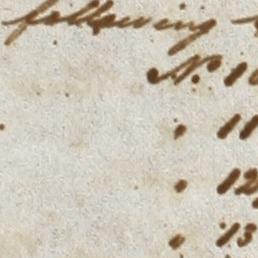 following
No. 10
. 11
. 12
. 13